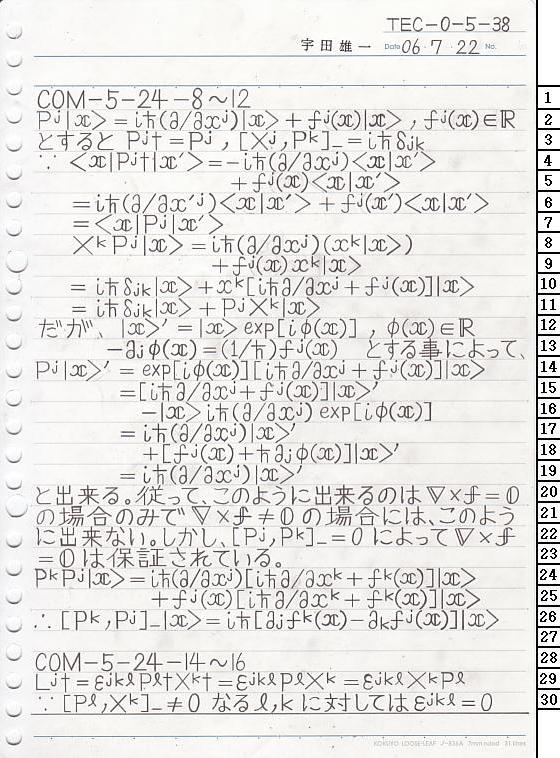 TEC-0-5-38
宇田雄一 Date 06・7・22 No.
COM-5-24-8～12
Pʲ|x> = iħ(∂/∂xʲ)|x> + fʲ(x)|x> , fʲ(x)∈ℝ
とすると Pʲ† = Pʲ , [Xʲ, Pᵏ]₋ = iħδⱼₖ
∵ <x|Pʲ†|x'> = -iħ(∂/∂xʲ)<x|x'>
+ fʲ(x)<x|x'>
= iħ(∂/∂x'ʲ)<x|x'> + fʲ(x')<x|x'>
= <x|Pʲ|x'>
XᵏPʲ|x> = iħ(∂/∂xʲ)(xᵏ|x>)
+ fʲ(x)xᵏ|x>
= iħδⱼₖ|x> + xᵏ[iħ∂/∂xʲ + fʲ(x)]|x>
= iħδⱼₖ|x> + PʲXᵏ|x>
だが、|x>' = |x> exp[iφ(x)] , φ(x)∈ℝ
-∂ⱼφ(x) = (1/ħ)fʲ(x) とする事によって、
Pʲ|x>' = exp[iφ(x)][iħ∂/∂xʲ + fʲ(x)]|x>
= [iħ∂/∂xʲ + fʲ(x)]|x>'
-|x> iħ(∂/∂xʲ) exp[iφ(x)]
= iħ(∂/∂xʲ)|x>'
+ [fʲ(x) + ħ∂ⱼφ(x)]|x>'
= iħ(∂/∂xʲ)|x>'
と出来る。従って、このように出来るのは ∇×f = 0
の場合のみで ∇×f ≠ 0 の場合には、このよう
に出来ない。しかし、[Pʲ, Pᵏ]₋ = 0 によって ∇×f
= 0 は保証されている。
PᵏPʲ|x> = iħ(∂/∂xʲ)[iħ∂/∂xᵏ + fᵏ(x)]|x>
+ fʲ(x)[iħ∂/∂xᵏ + fᵏ(x)]|x>
∴ [Pᵏ, Pʲ]₋|x> = iħ[∂ⱼfᵏ(x) - ∂ₖfʲ(x)]|x>
COM-5-24-14～16
Lʲ† = εʲᵏˡPˡ†Xᵏ† = εʲᵏˡPˡXᵏ = εʲᵏˡXᵏPˡ
∵ [Pˡ, Xᵏ]₋ ≠ 0 なる ℓ, k に対しては εʲᵏˡ = 0
KOKUYO LOOSE-LEAF ノ-836A 7mm ruled 31 lines
1
2
3
4
5
6
7
8
9
10
11
12
13
14
15
16
17
18
19
20
21
22
23
24
25
26
27
28
29
30